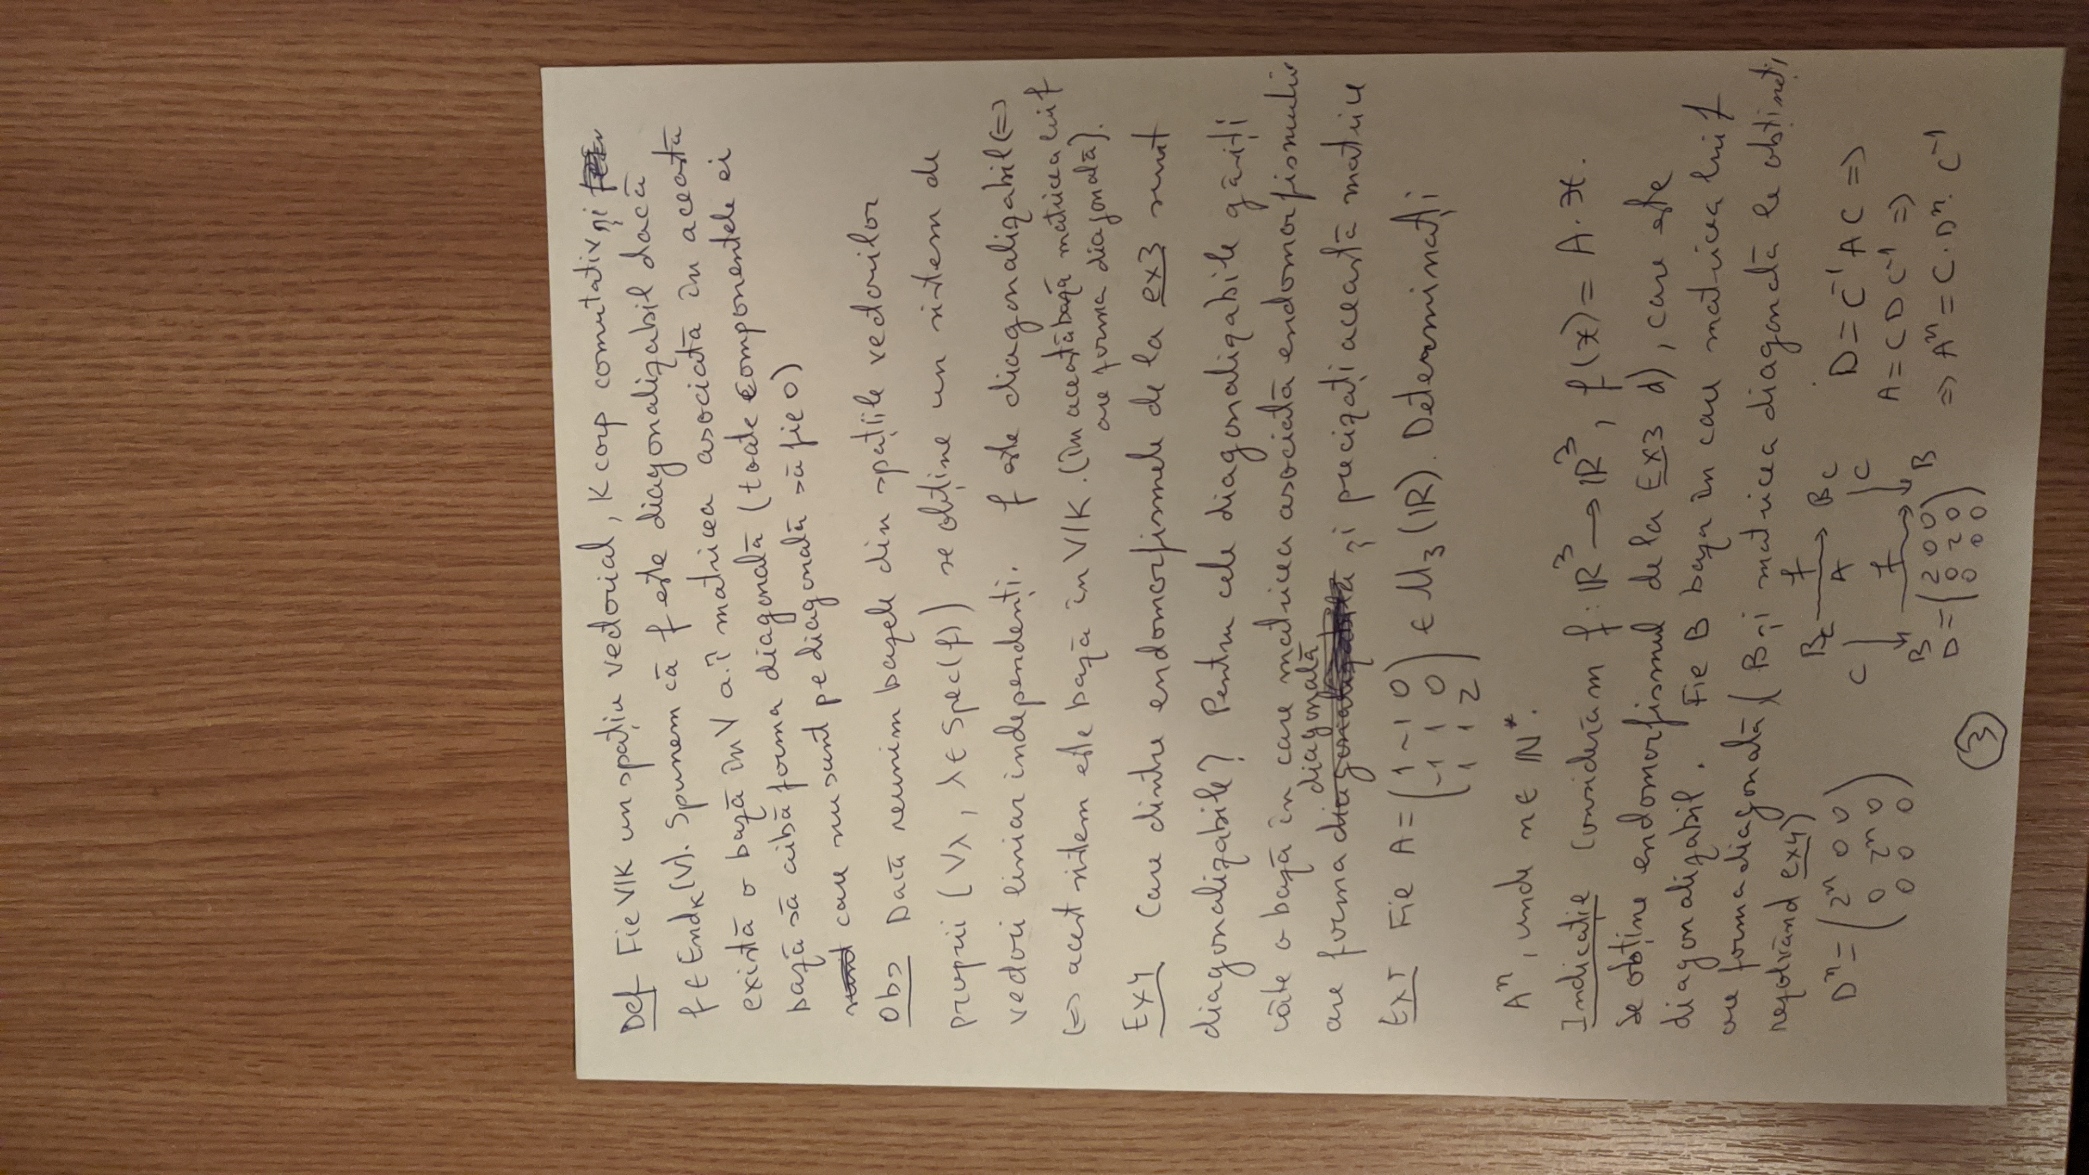 Def Fie V/K un spațiu vectorial, K corp comutativ și
f ∈ End_K(V). Spunem că f este diagonalizabil dacă
există o bază în V a.î matricea asociată în aceasta
bază să aibă forma diagonală (toate componentele ei
care nu sunt pe diagonală să fie 0)
Obs Dacă reunim bazele din spațiile vectorilor
proprii (Vλ, λ ∈ Spec(f)) se obține un sistem de
vectori liniar independenți. f este diagonalizabil ⇔
⇔ acest sistem este bază în V/K. (în această bază matricea lui f
are forma diagonală).
Ex4 Care dintre endomorfismele de la ex3 sunt
diagonalizabile? Pentru cele diagonalizabile găsiți
câte o bază în care matricea asociată endomorfismului
are forma diagonală și precizați această matrice
Ex5 Fie A = (1 -1 0
-1 1 0
1 1 2) ∈ M₃(ℝ). Determinați
Aⁿ, unde n ∈ ℕ*.
Indicație Considerăm f: ℝ³ → ℝ³, f(x) = A·x.
Se obține endomorfismul de la Ex3 d), care este
diagonalizabil. Fie B baza în care matricea lui f
are forma diagonală (B și matricea diagonală le obțineți
rezolvând ex4)
Dⁿ = (2ⁿ 0 0
0 2ⁿ 0
0 0 0)
Bc f→ Bc
A
C ↓ ↓ C
f→
B B
D = (2 0 0
0 2 0
0 0 0)
D = C⁻¹ A C ⇒
A = C D C⁻¹ ⇒
⇒ Aⁿ = C · Dⁿ · C⁻¹
3